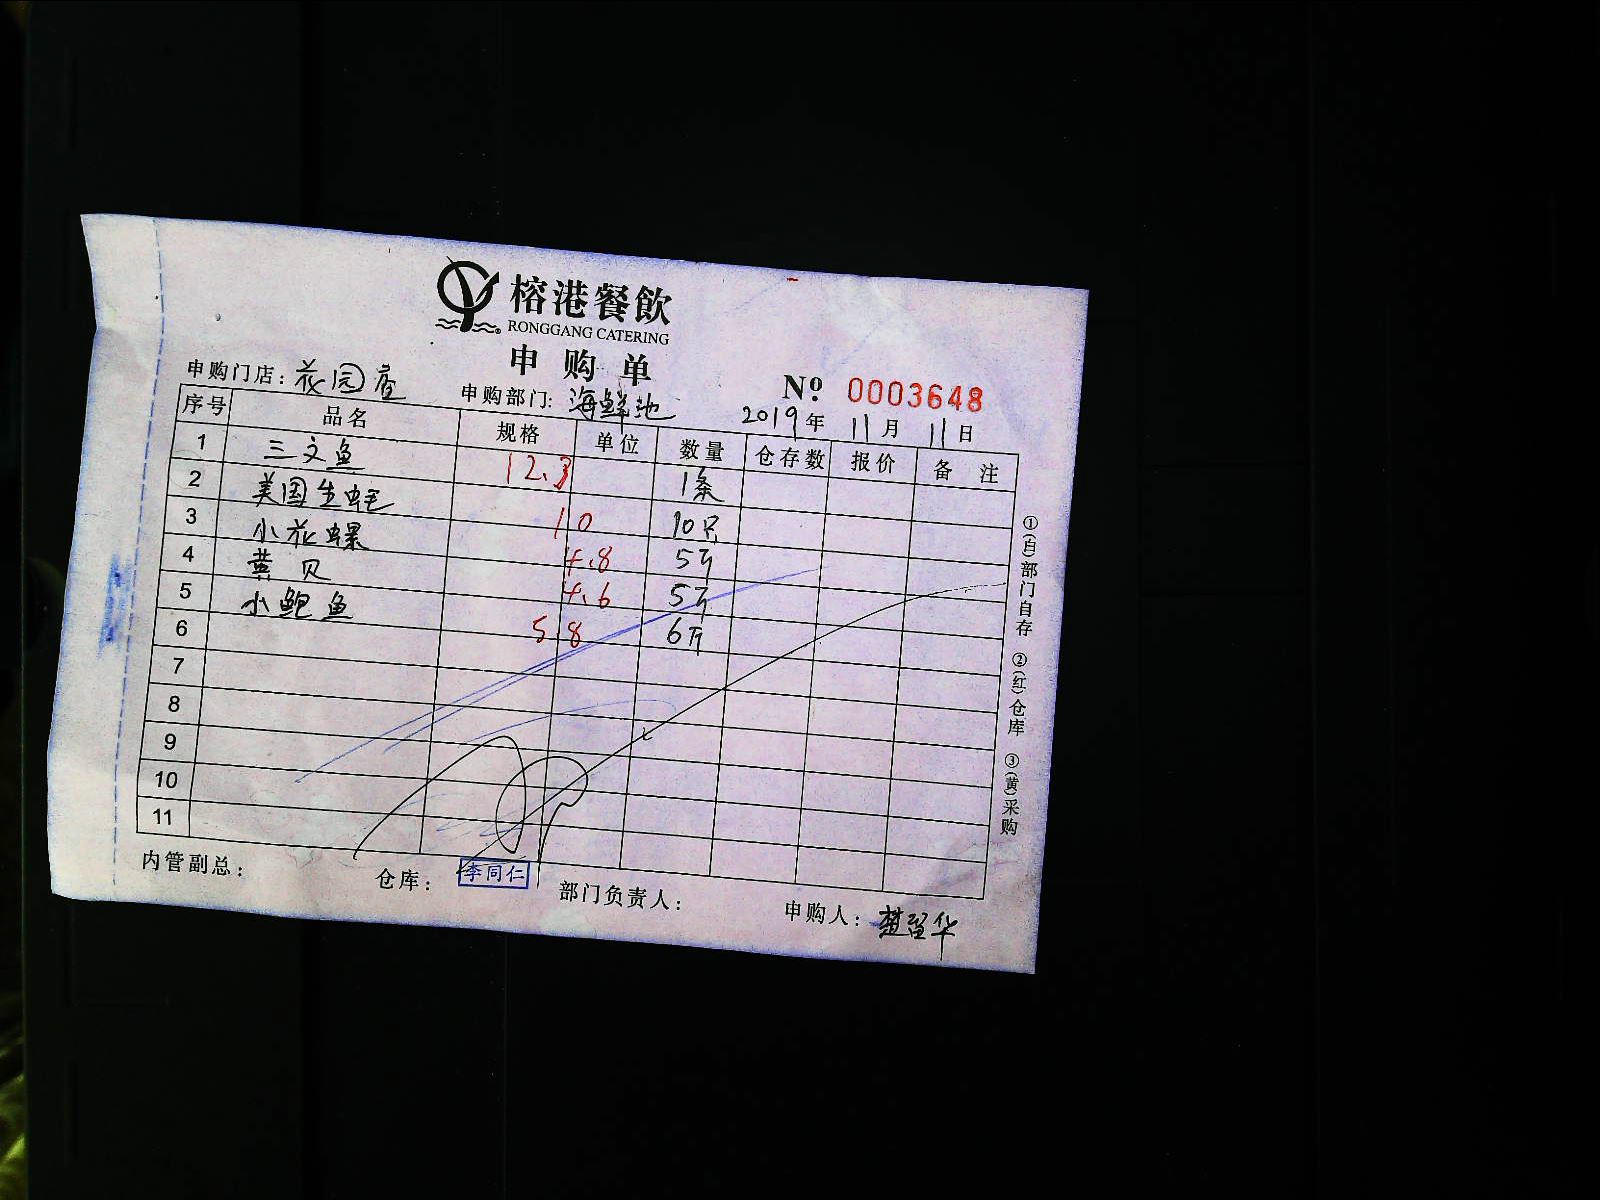 榕港餐飲
RONGGANG CATERING
申购单
申购门店：花园店 申购部门：海鲜池 Nº 0003648
2019年 11月 11日
序号 品名 规格 单位 数量 仓存数 报价 备注
1 三文鱼 12.3 1条
2 美国生蚝 10 10只
3 小花螺 4.8 5斤
4 黄贝 4.6 5斤
5 小鲍鱼 5 8 6斤
6
7
8
9
10
11
内管副总： 仓库：李同仁 部门负责人： 申购人：
①(白)部门自存 ②(红)仓库 ③(黄)采购